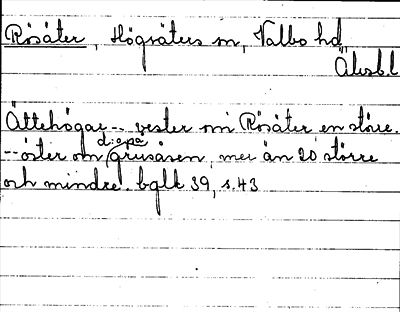 Rösäter, Högsäters sn, Valbo hd,
Älvsb.l.
Ättehögar -- vester om Rösäter en större.
d:o på
-- öster om grusåsen, mer än 20 större
och mindre. bglt 39, s. 43